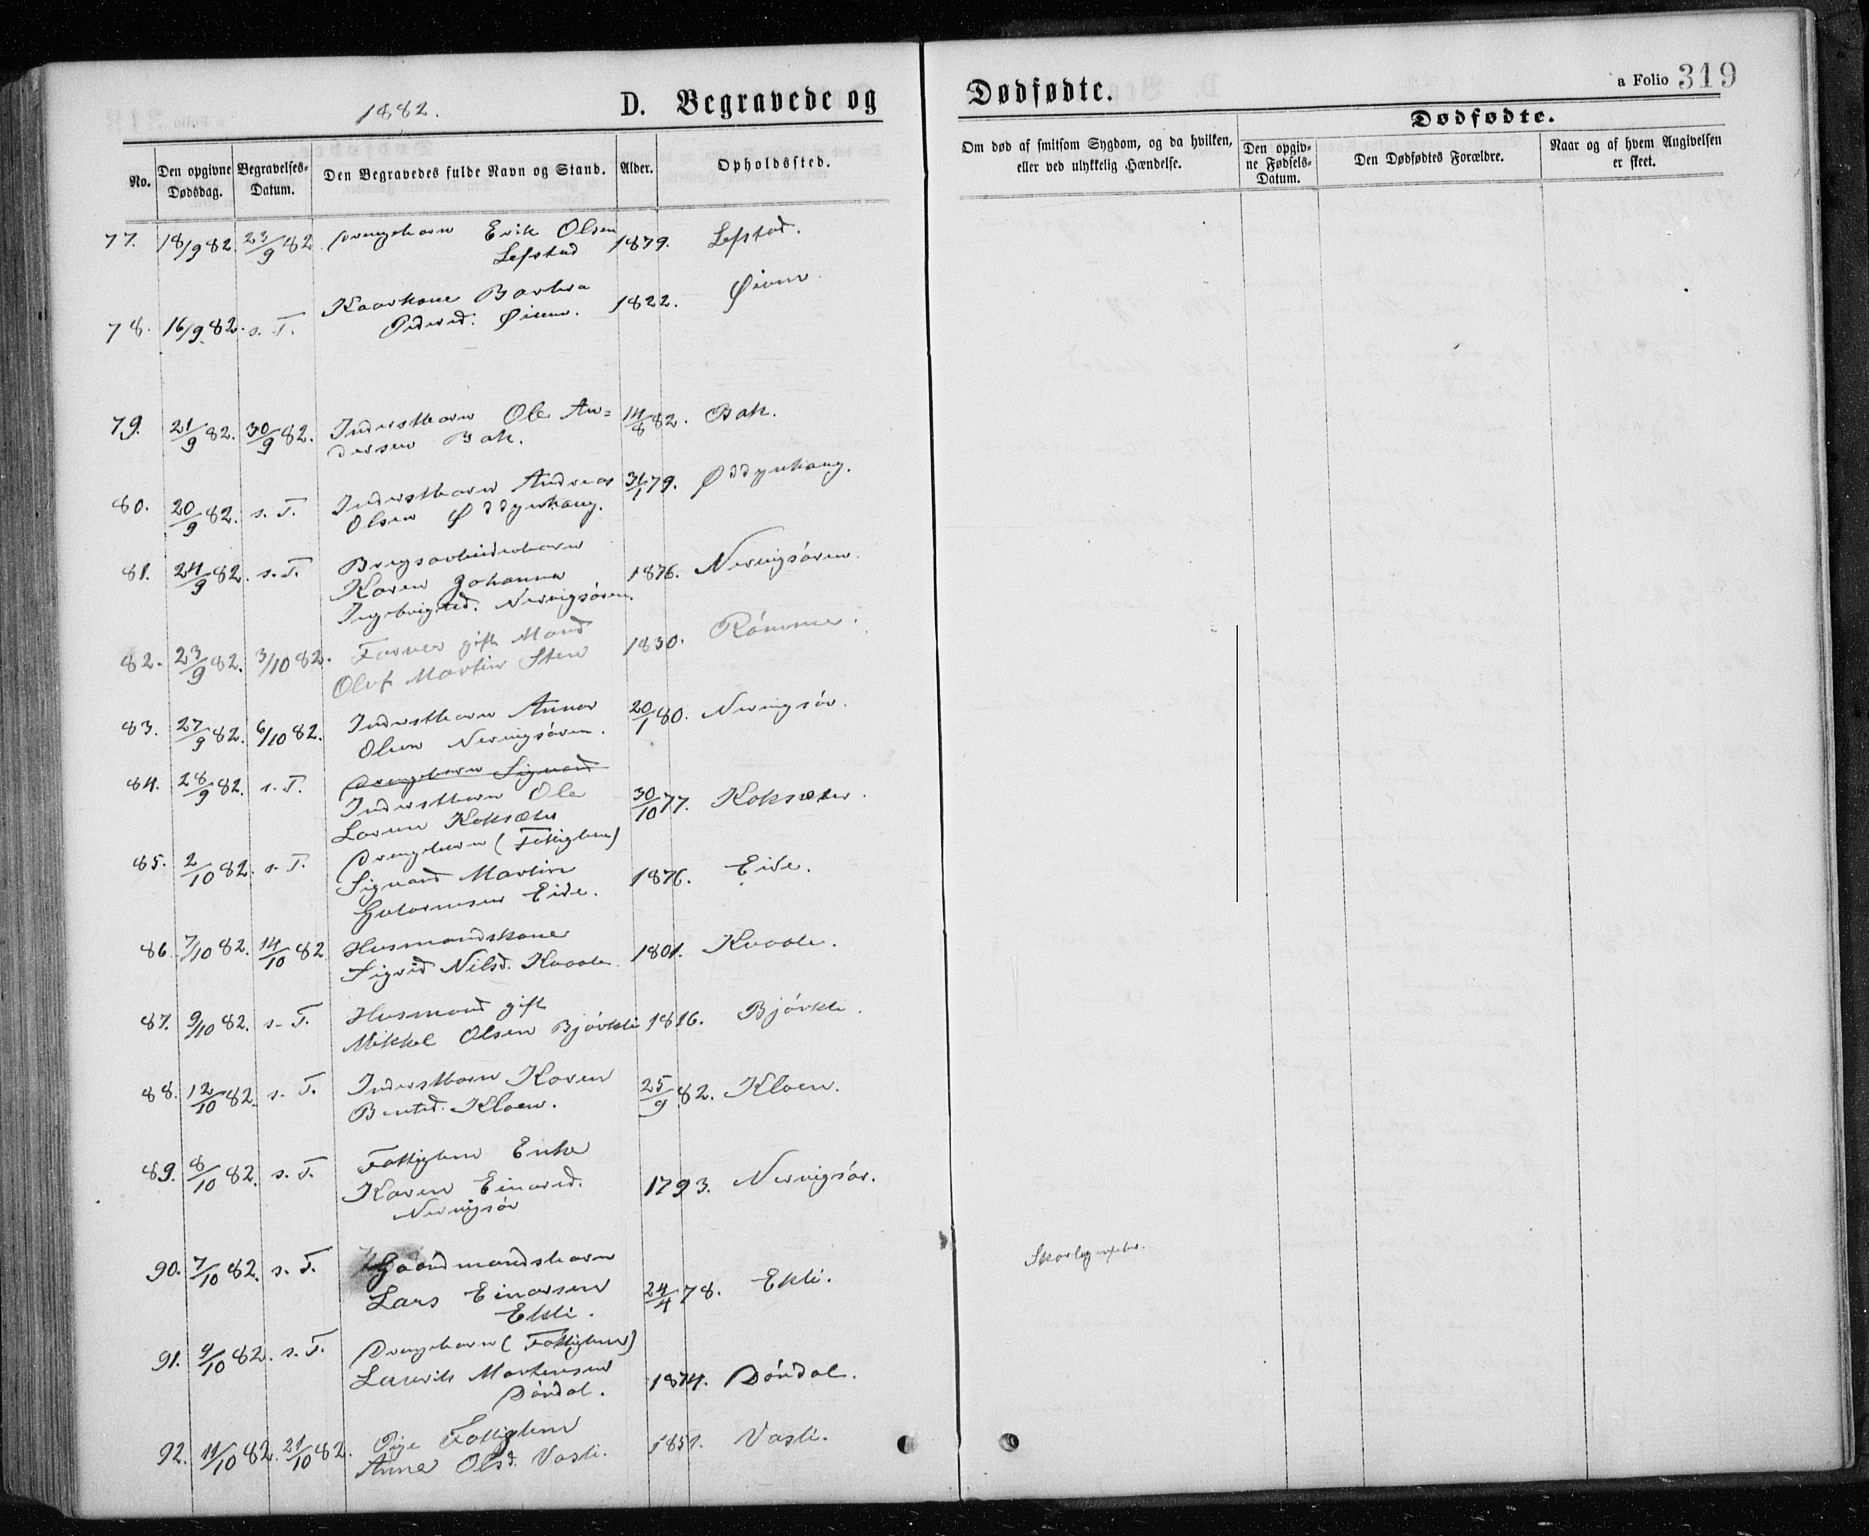 1882.
D. Begravede og
Dødfødte.
a Folio 319
No.
Den opgivne Dødsdag.
Begravelses-Datum.
Den Begravedes fulde Navn og Stand.
Alder.
Opholdssted.
Om død af smitsom Sygdom, og da hvilken, eller ved ulykkelig Hændelse.
Dødfødte.
Den opgiv-ne Fødsels-Datum.
Den Dødfødtes Forældre.
Naar og af hvem Angivelsen er skeet.
77. 18/9 82. 23/9 82 Drengebarn Erik Olsen 1879. Lefstad.
Lefstad
78. 16/9 82. s. T. Kaarkone Barbra 1822. Øien
Pedersd. Øien.
79. 21/9 82. 30/9 82. Inderstbarn Ole An= 14/8 82. Bak.
dersen Bak.
80. 20/9 82. s. T. Inderstbarn Andreas 31/1 79. Øddynhaug.
Olsen Øddynhaug.
81. 24/9 82. s. T. Brugsarbeiderbarn
Karen Johanna 1876. Nervigsøren.
Ingebrigtsd. Nervigsøren.
82. 23/9 82. 3/10 82. Farver gift Mand 1830. Rømme.
Oluf Martin Sten
83. 27/9 82. 6/10 82. Inderstbarn Anna 20/1 80. Nervigsør.
Olsen Nervigsøren.
84. 28/9 82. s. T. Drengebarn Sigvard
Inderstbarn Ole 30/10 77. Koksæter.
Larsen Koksæter
85. 2/10 82. s. T. Drengebarn (Fattiglem)
Sigvard Martin 1876. Eide.
Halvorsen Eide.
86. 7/10 82. 14/10 82 Husmandskone
Sigrid Nilsd. Kvaale 1801. Kvaale.
87. 9/10 82. s. T. Husmand gift
Mikkel Olsen Bjørkli 1816. Bjørkli.
88. 12/10 82. s. T. Inderstbarn Karen 25/9 82. Kloen.
Bentsd. Kloen.
89. 8/10 82. s. T. Fattiglem Enke
Karen Einarsd. 1793. Nervigsør.
Nervigsør
90. 7/10 82. s. T. Gaardmandsbarn
Lars Einarsen 24/4 78. Ekli. Skarlagensfeber.
Ekli.
91. 9/10 82. s. T. Drengebarn (Fattiglem)
Laurits Mortensen 1874. Dørdal.
Dørdal.
92. 11/10 82. 21/10 82. Pige Fattiglem 1851. Vasli.
Anne Olsd. Vasli.